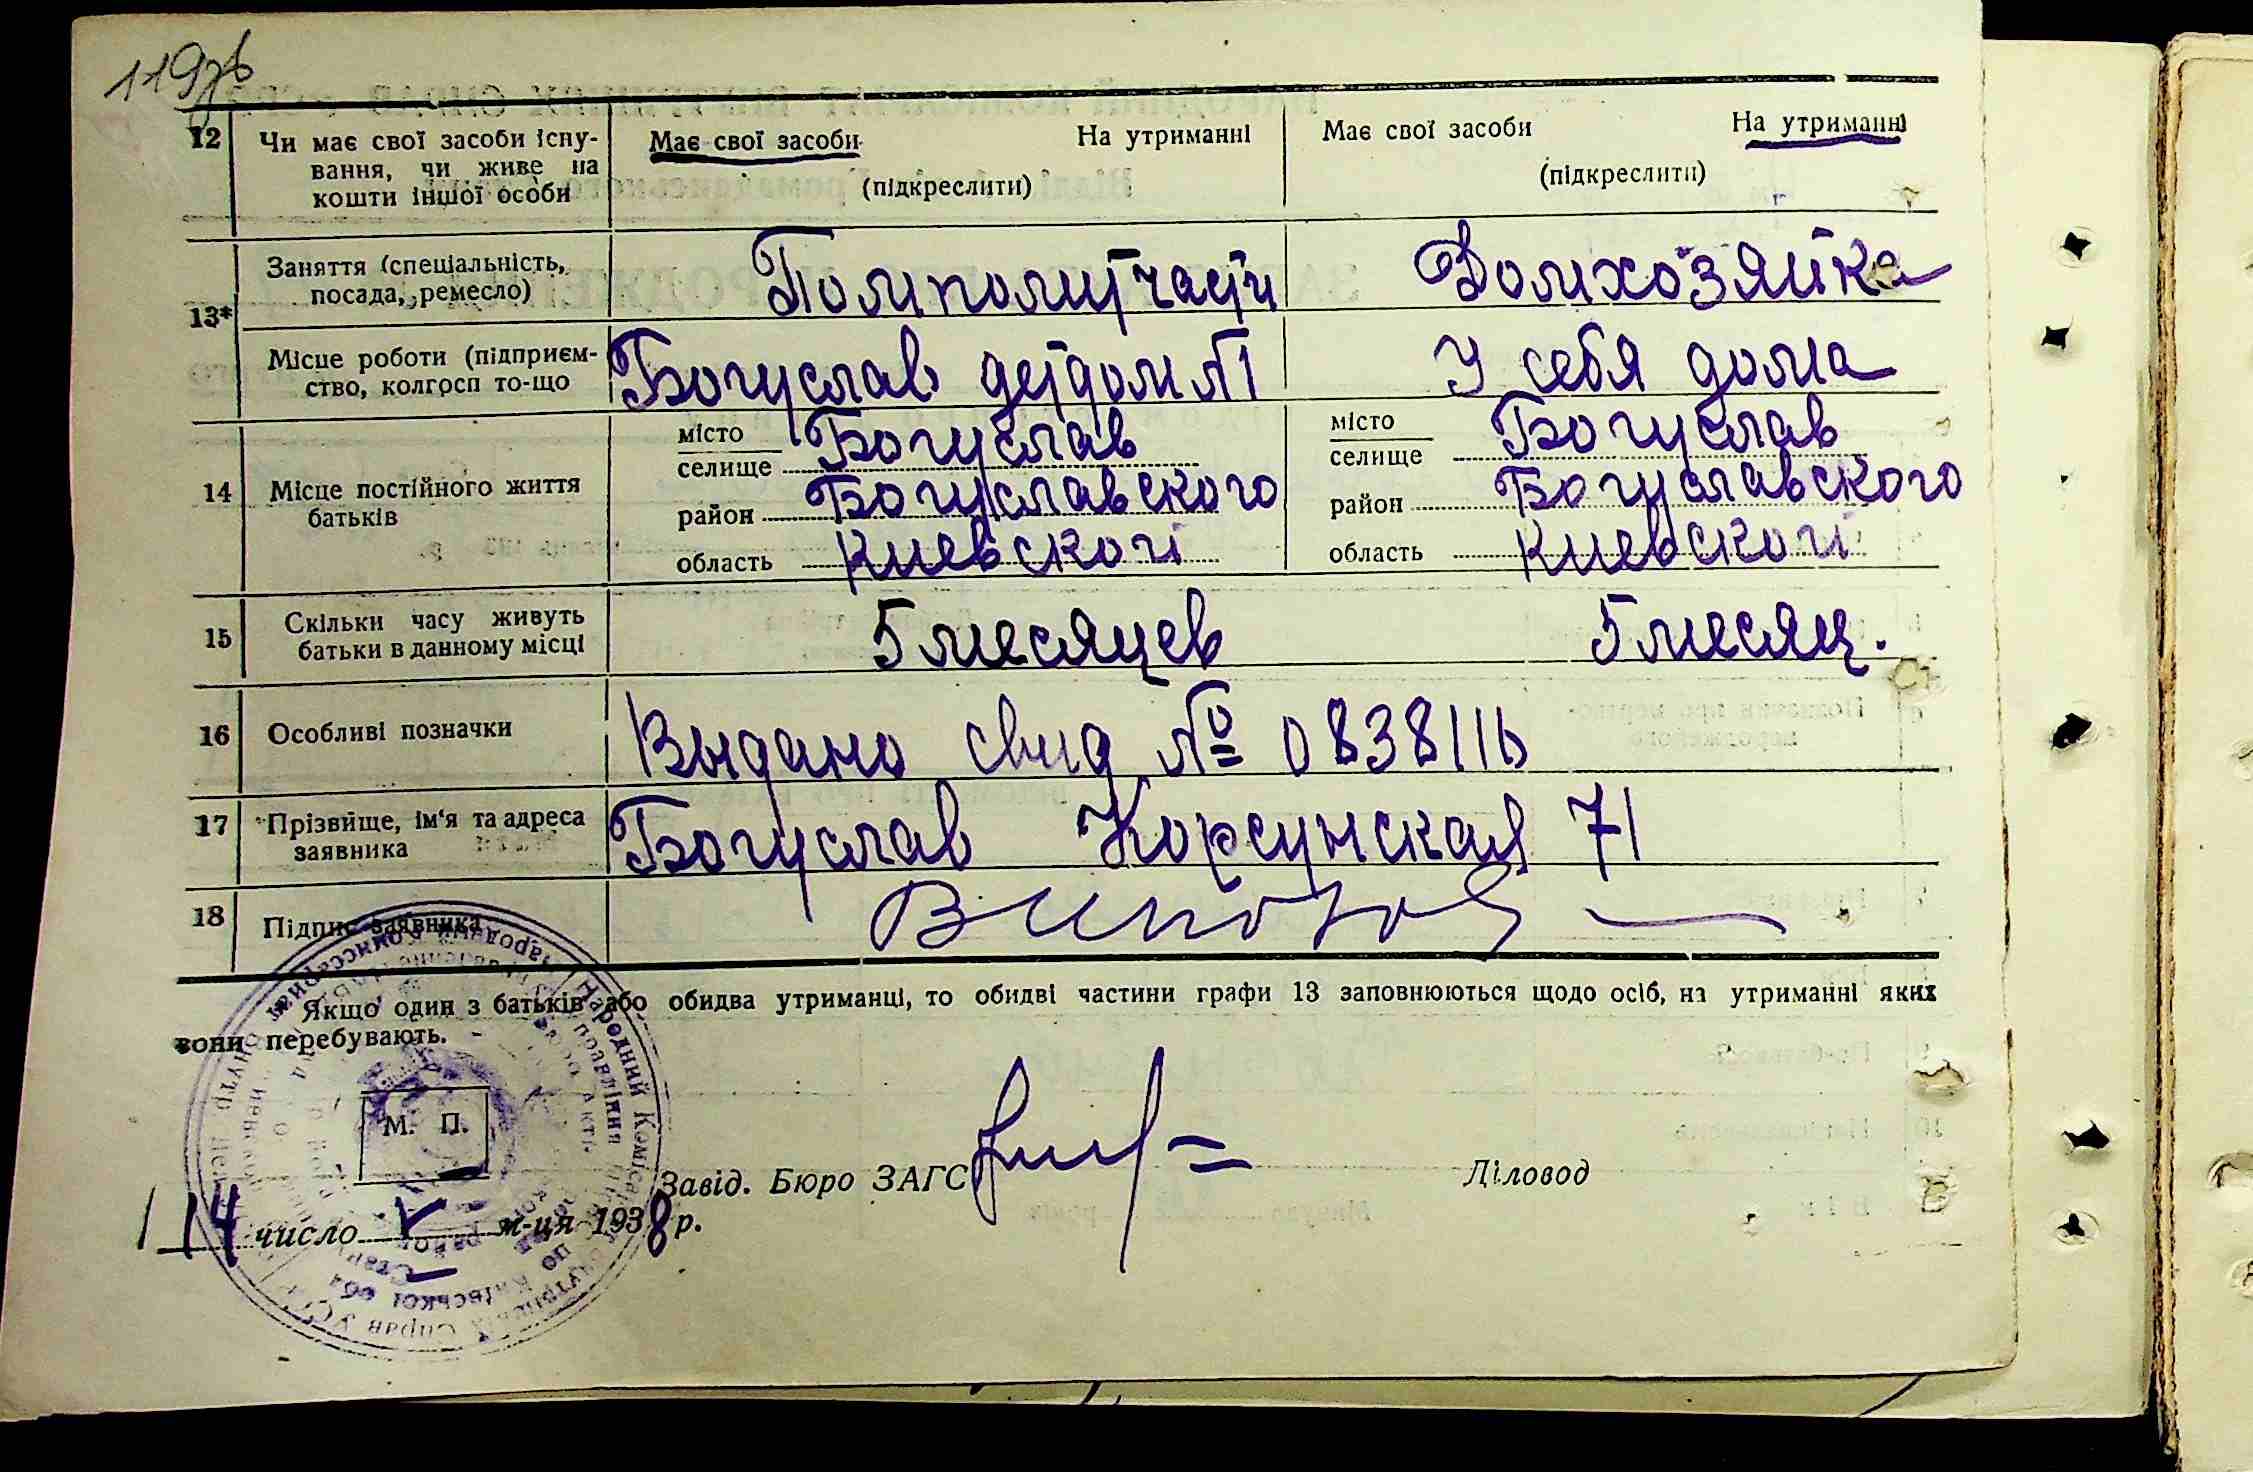 119зв
12 Чи має свої засоби існу- Має свої засоби На утриманні Має свої засоби На утриманні
вання, чи живе на
кошти іншої особи (підкреслити) (підкреслити)
13* Заняття (спеціальність, посада, ремесло) Домхозяйка
Місце роботи (підприєм-
ство, колгосп то-що Богуслав детдом №1 У себя дома
14 Місце постійного життя
батьків
місто Богуслав місто Богуслав
селище селище
район Богуславского район Богуславского
область Киевской область Киевской
15 Скільки часу живуть
батьки в данному місці 5 месяцев 5 месяц.
16 Особливі позначки Выдано свид № 083811ь
17 Прізвище, ім'я та адреса
заявника Богуслав Корсунская 71
18 Підпис заявника
Якщо один з батьків або обидва утриманці, то обидві частини графи 13 заповнюються щодо осіб, на утриманні яких
вони перебувають.
М. П.
Завід. Бюро ЗАГС Діловод
14 число V м-ця 1938 р.